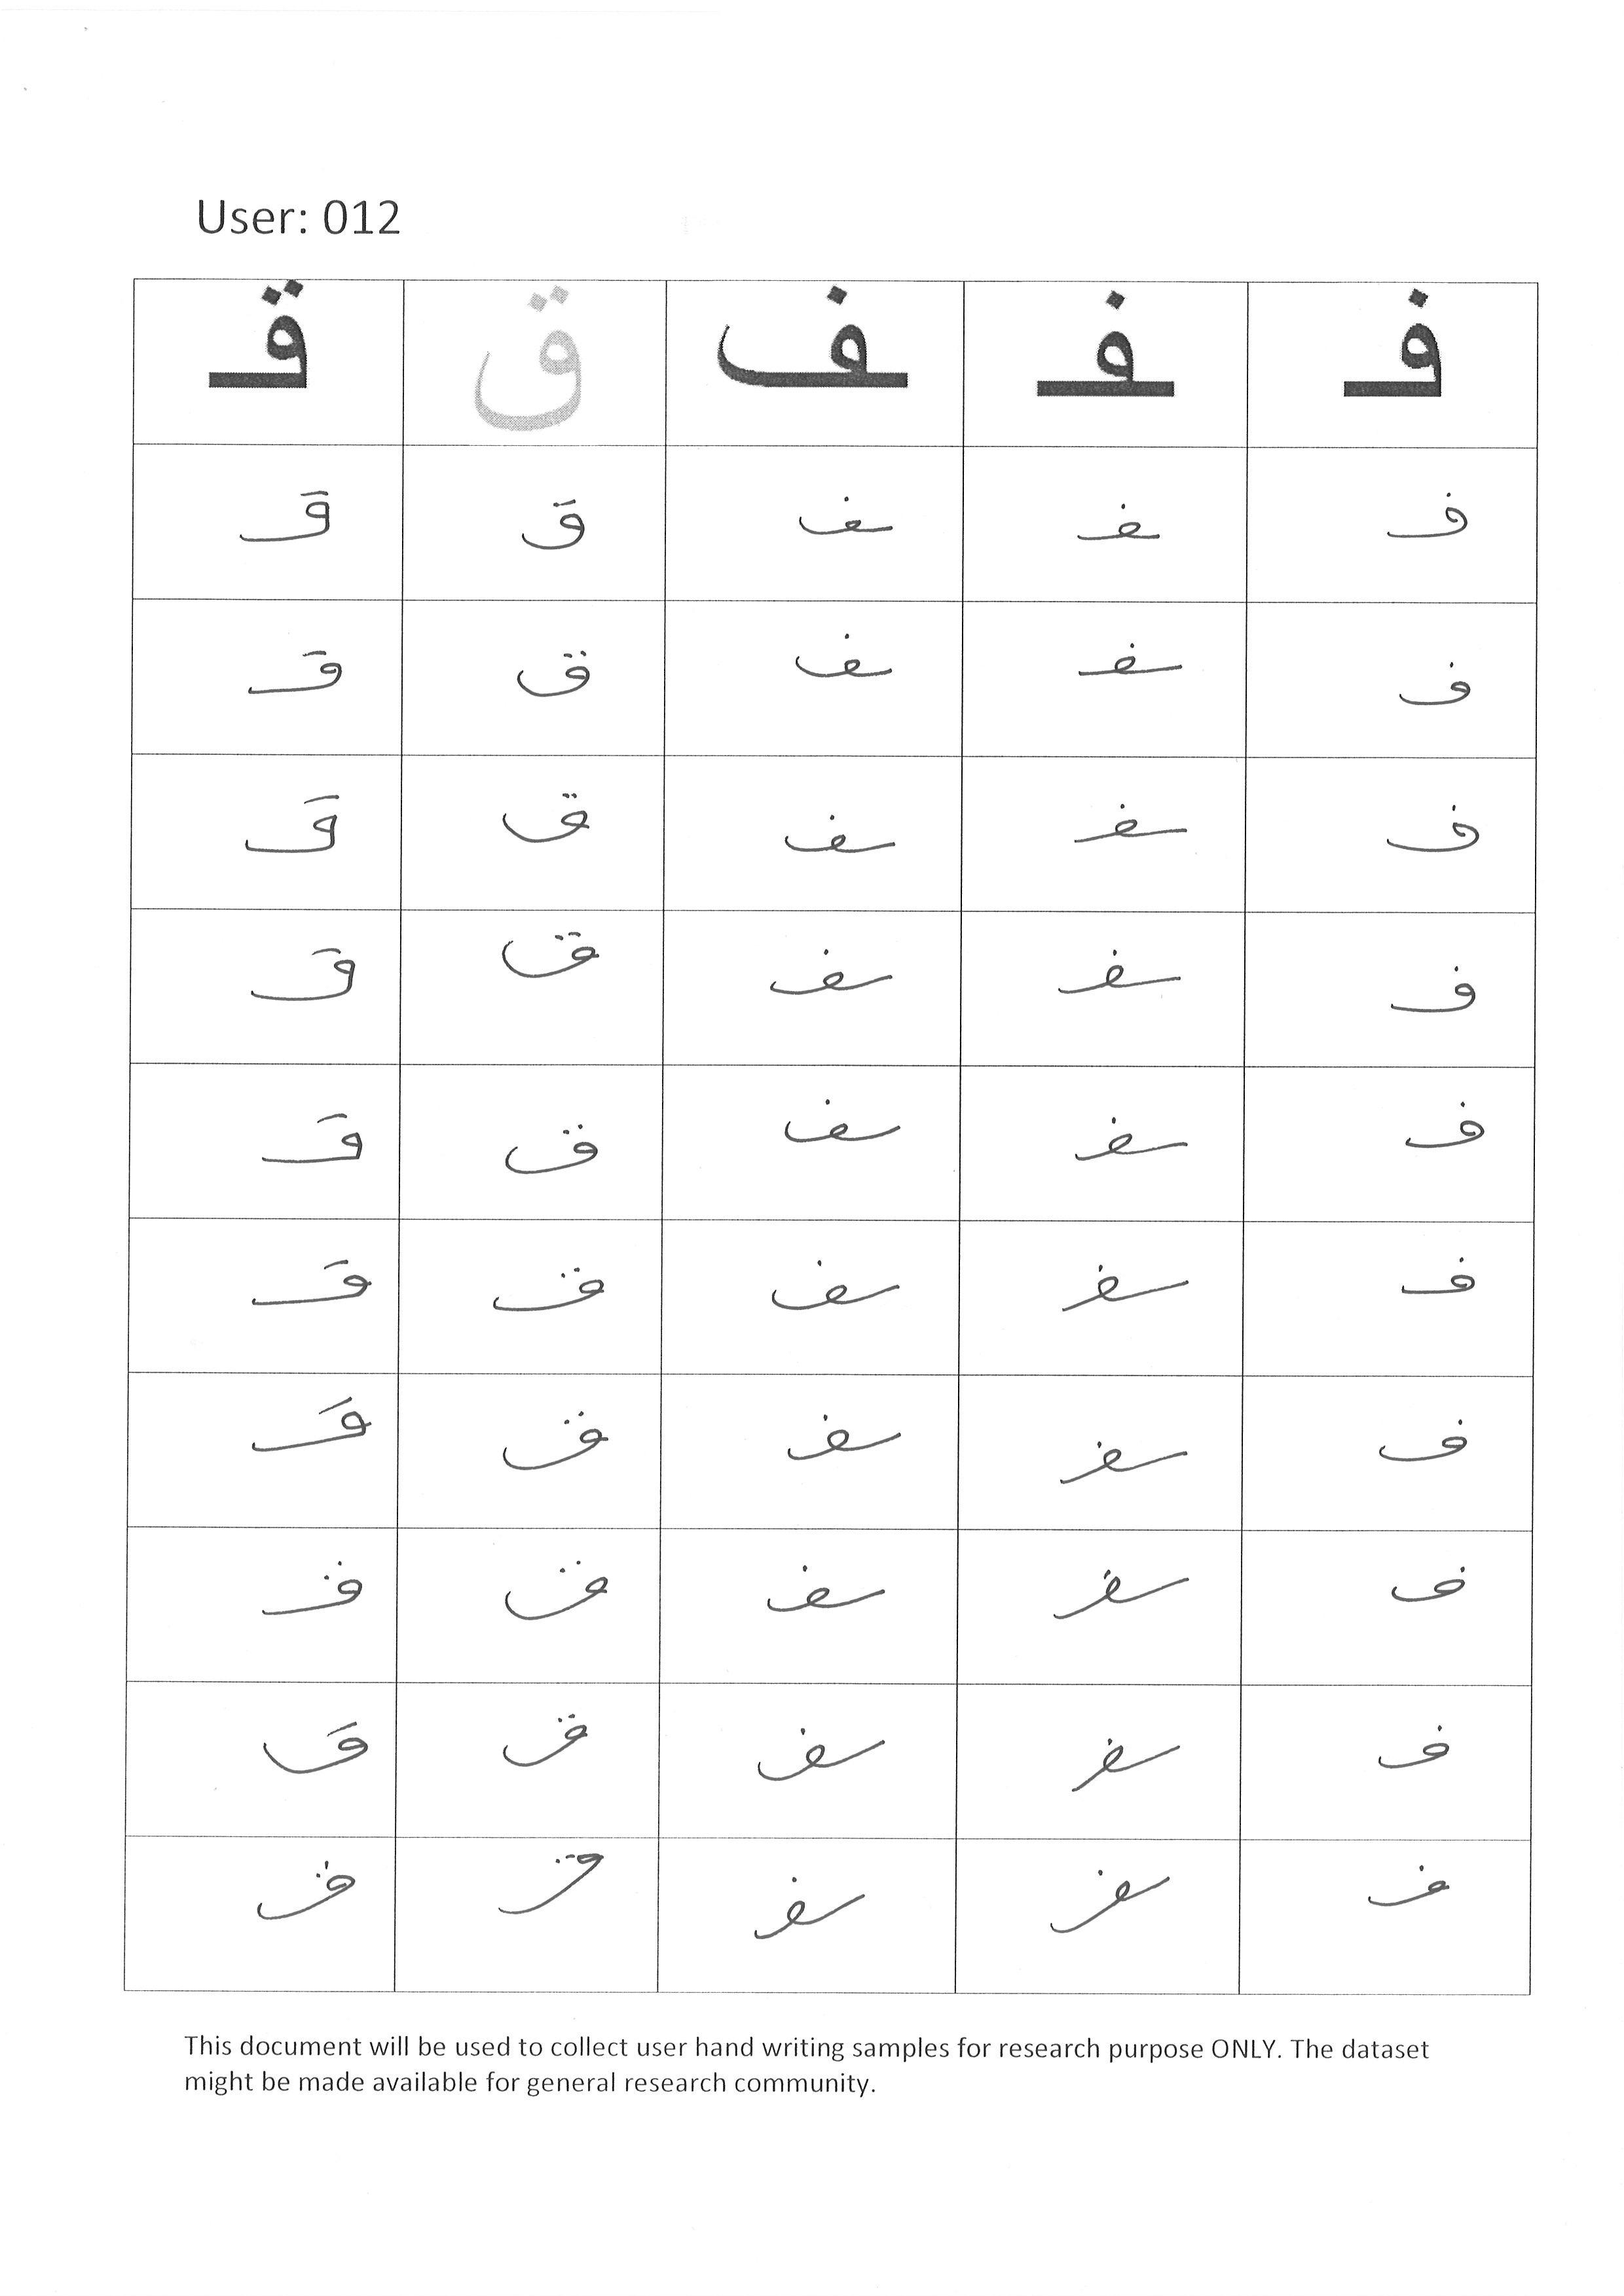 User: 012
فـ ـفـ ـف ق قـ
فـ ـفـ ـف ق قـ
فـ ـفـ ـف ق قـ
فـ ـفـ ـف ق قـ
فـ ـفـ ـف ق قـ
فـ ـفـ ـف ق قـ
فـ ـفـ ـف ق قـ
فـ ـفـ ـف ق قـ
فـ ـفـ ـف ق قـ
فـ ـفـ ـف ق قـ
فـ ـفـ ـف ق قـ
This document will be used to collect user hand writing samples for research purpose ONLY. The dataset
might be made available for general research community.